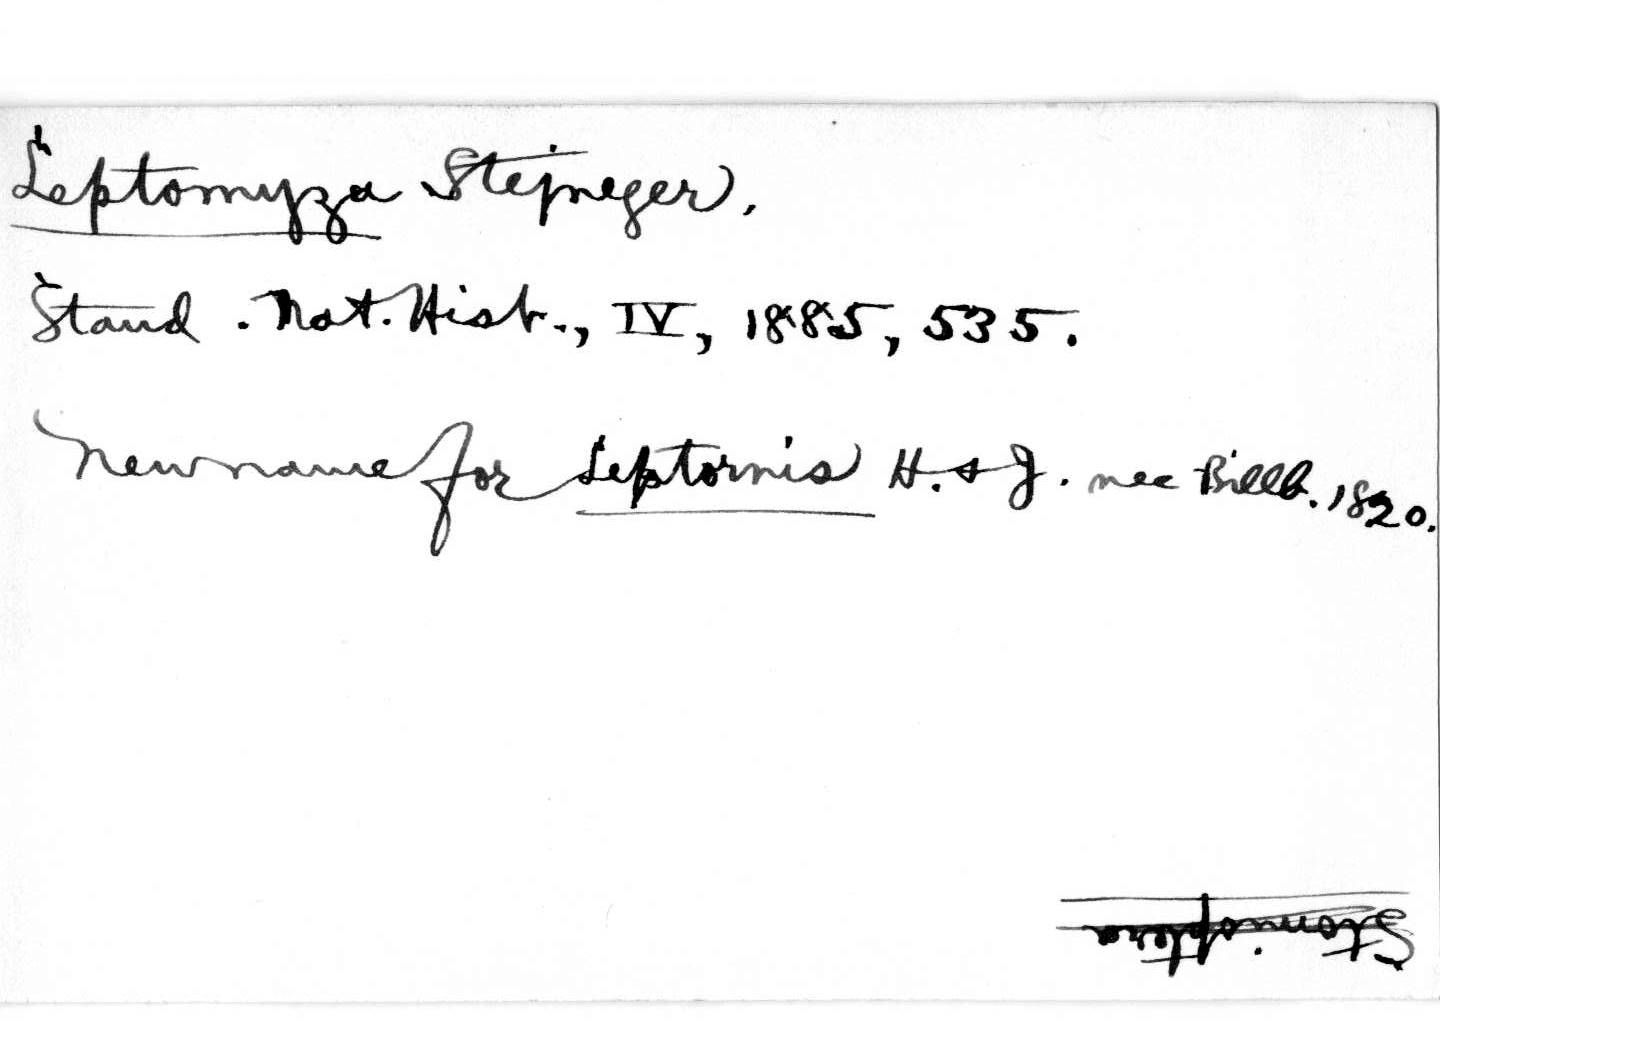 Leptomyza Stejneger.
Stand. Nat. Hist., IV, 1885, 535.
New name for Leptornis H. & J. nec Billb. 1820.